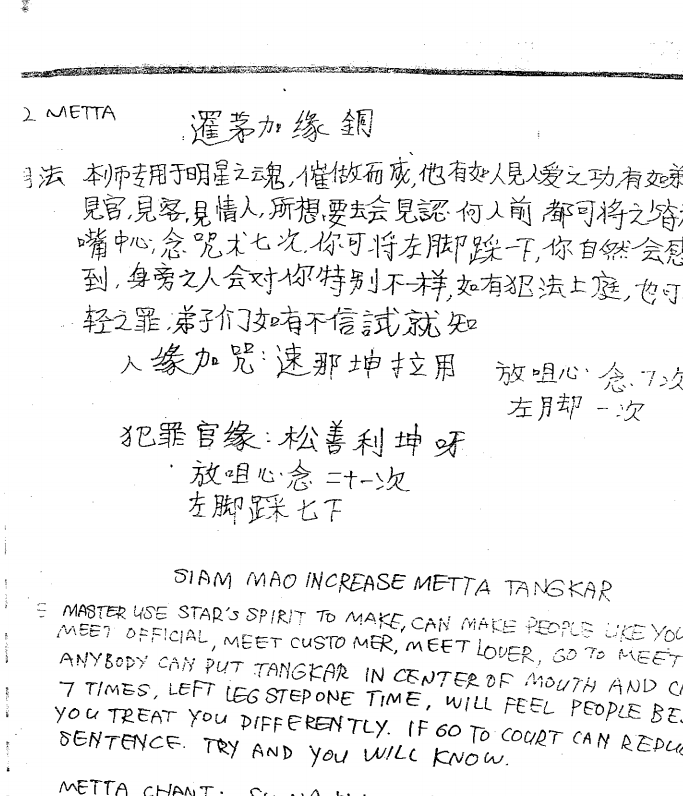 2 METTA
暹茅加缘銅
法 本师专用于明星之魂,催做而成,他有如人見人爱之功,有如弟
見官,見客,見情人,所想要去会見認何人前 都可将之
嘴中心,念咒术七次,你可将左脚踩一下,你自然会感
到,身旁之人会对你特别不一样,如有犯法上庭,也可
轻之罪,弟子们如有不信試就知
人缘加咒:速那坤拉用
放咀心念7次
左脚一次
犯罪官缘:松善利坤呀
放咀心念二十一次
左脚踩七下
SIAM MAO INCREASE METTA TANGKAR
MASTER USE STAR'S SPIRIT TO MAKE, CAN MAKE PEOPLE LIKE YOU
MEET OFFICIAL, MEET CUSTOMER, MEET LOVER, GO TO MEET
ANYBODY CAN PUT TANGKAR IN CENTER OF MOUTH AND C
7 TIMES, LEFT LEG STEP ONE TIME, WILL FEEL PEOPLE BE
YOU TREAT YOU DIFFERENTLY. IF GO TO COURT CAN REDUC
SENTENCE. TRY AND YOU WILL KNOW.
METTA CHANT: